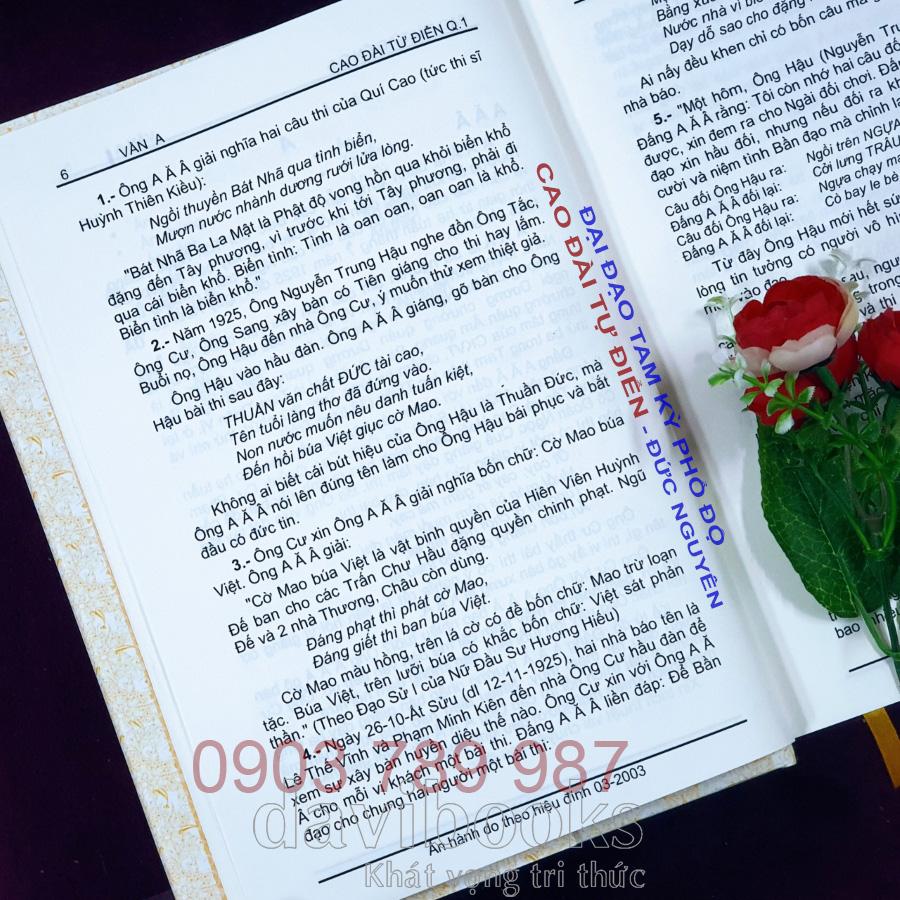 CAO ĐÀI TỪ ĐIỂN Q.1
6 VẦN A
1.- Ông A Ă Â giải nghĩa hai câu thi của Quí Cao (tức thi sĩ
Huỳnh Thiên Kiều):
Ngồi thuyền Bát Nhã qua tình biển,
Mượn nước nhành dương rưới lửa lòng.
"Bát Nhã Ba La Mật là Phật độ vong hồn qua khỏi biển khổ
đặng đến Tây phương, vì trước khi tới Tây phương, phải đi
qua cái biển khổ. Biển tình: Tình là oan oan, oan oan là khổ.
Biển tình là biển khổ."
2.- Năm 1925, Ông Nguyễn Trung Hậu nghe đồn Ông Tắc,
Ông Cư, Ông Sang xây bàn có Tiên giáng cho thi hay lắm.
Buổi nọ, Ông Hậu đến nhà Ông Cư, ý muốn thử xem thiệt giả.
Ông Hậu vào hầu đàn. Ông A Ă Â giáng, gõ bàn cho Ông
Hậu bài thi sau đây:
THUẦN văn chất ĐỨC tài cao,
Tên tuổi làng thơ đã đứng vào.
Non nước muốn nêu danh tuấn kiệt,
Đến hồi búa Việt giục cờ Mao.
Không ai biết cái bút hiệu của Ông Hậu là Thuần Đức, mà
Ông A Ă Â nói lên đúng tên làm cho Ông Hậu bái phục và bắt
đầu có đức tin.
3.- Ông Cư xin Ông A Ă Â giải nghĩa bốn chữ: Cờ Mao búa
Việt. Ông A Ă Â giải:
"Cờ Mao búa Việt là vật binh quyền của Hiên Viên Huỳnh
Đế ban cho các Trấn Chư Hầu đặng quyền chinh phạt. Ngũ
Đế và 2 nhà Thương, Châu còn dùng.
Đáng phạt thì phát cờ Mao,
Đáng giết thì ban búa Việt.
Cờ Mao màu hồng, trên lá cờ có đề bốn chữ: Mao trừ loạn
tặc. Búa Việt, trên lưỡi búa có khắc bốn chữ: Việt sát phản
thần." (Theo Đạo Sử I của Nữ Đầu Sư Hương Hiếu)
4.- "Ngày 26-10-Ất Sửu (dl 12-11-1925), hai nhà báo tên là
Lê Thế Vĩnh và Phạm Minh Kiên đến nhà Ông Cư hầu đàn để
xem sự xây bàn huyền diệu thế nào. Ông Cư xin với Ông A Ă
 cho mỗi vị khách một bài thi. Đấng A Ă Â liền đáp: Để Bần
đạo cho chung hai người một bài thi:
Ấn hành do theo hiệu đính 03-2003
Bằng xuôi
Nước nhà vì
Dạy dỗ sao cho đặng
Ai nấy đều khen chỉ có bốn câu mà
nhà báo.
5.- "Một hôm, Ông Hậu (Nguyễn Trung
Đấng A Ă Â rằng: Tôi còn nhớ hai câu đối
được, xin đem ra cho Ngài đối chơi. Đấng
đạo xin hầu đối, nhưng nếu đối ra
cười và niệm tình Bần đạo mà chỉnh lại
Câu đối Ông Hậu ra: Ngồi trên NGỰA
Đấng A Ă Â đối lại: Cởi lưng TRÂU
Câu đối Ông Hậu ra: Ngựa chạy
Đấng A Ă Â đối lại: Cò bay le
Từ đây Ông Hậu mới hết sức
lòng tin tưởng có người vô hình
sau,
ĐẠI ĐẠO TAM KỲ PHỔ ĐỘ
CAO ĐÀI TỰ ĐIỂN - ĐỨC NGUYÊN
0903 789 987
davibooks
Khát vọng tri thức